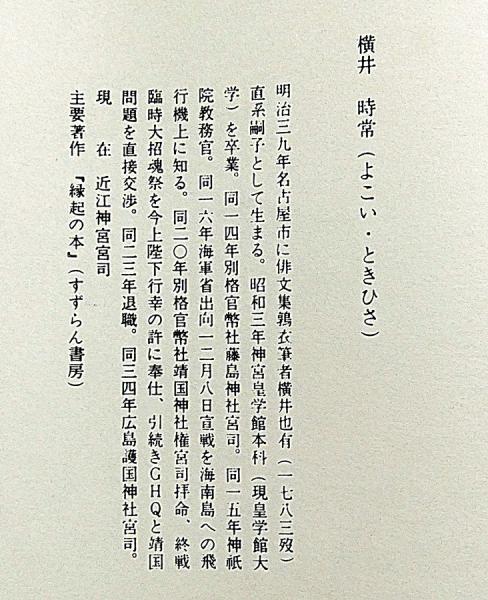 横井　時常（よこい・ときひさ）
明治三九年名古屋市に俳文集鶉衣筆者横井也有（一七八三歿）
直系嗣子として生まる。昭和三年神宮皇学館本科（現皇学館大
学）を卒業。同一四年別格官幣社藤島神社宮司。同一五年神祇
院教務官。同一六年海軍省出向一二月八日宣戦を海南島への飛
行機上に知る。同二〇年別格官幣社靖国神社権宮司拝命、終戦
臨時大招魂祭を今上陛下行幸の許に奉仕、引続きＧＨＱと靖国
問題を直接交渉。同二三年退職。同三四年広島護国神社宮司。
現　在　近江神宮宮司
主要著作　『縁起の本』（すずらん書房）